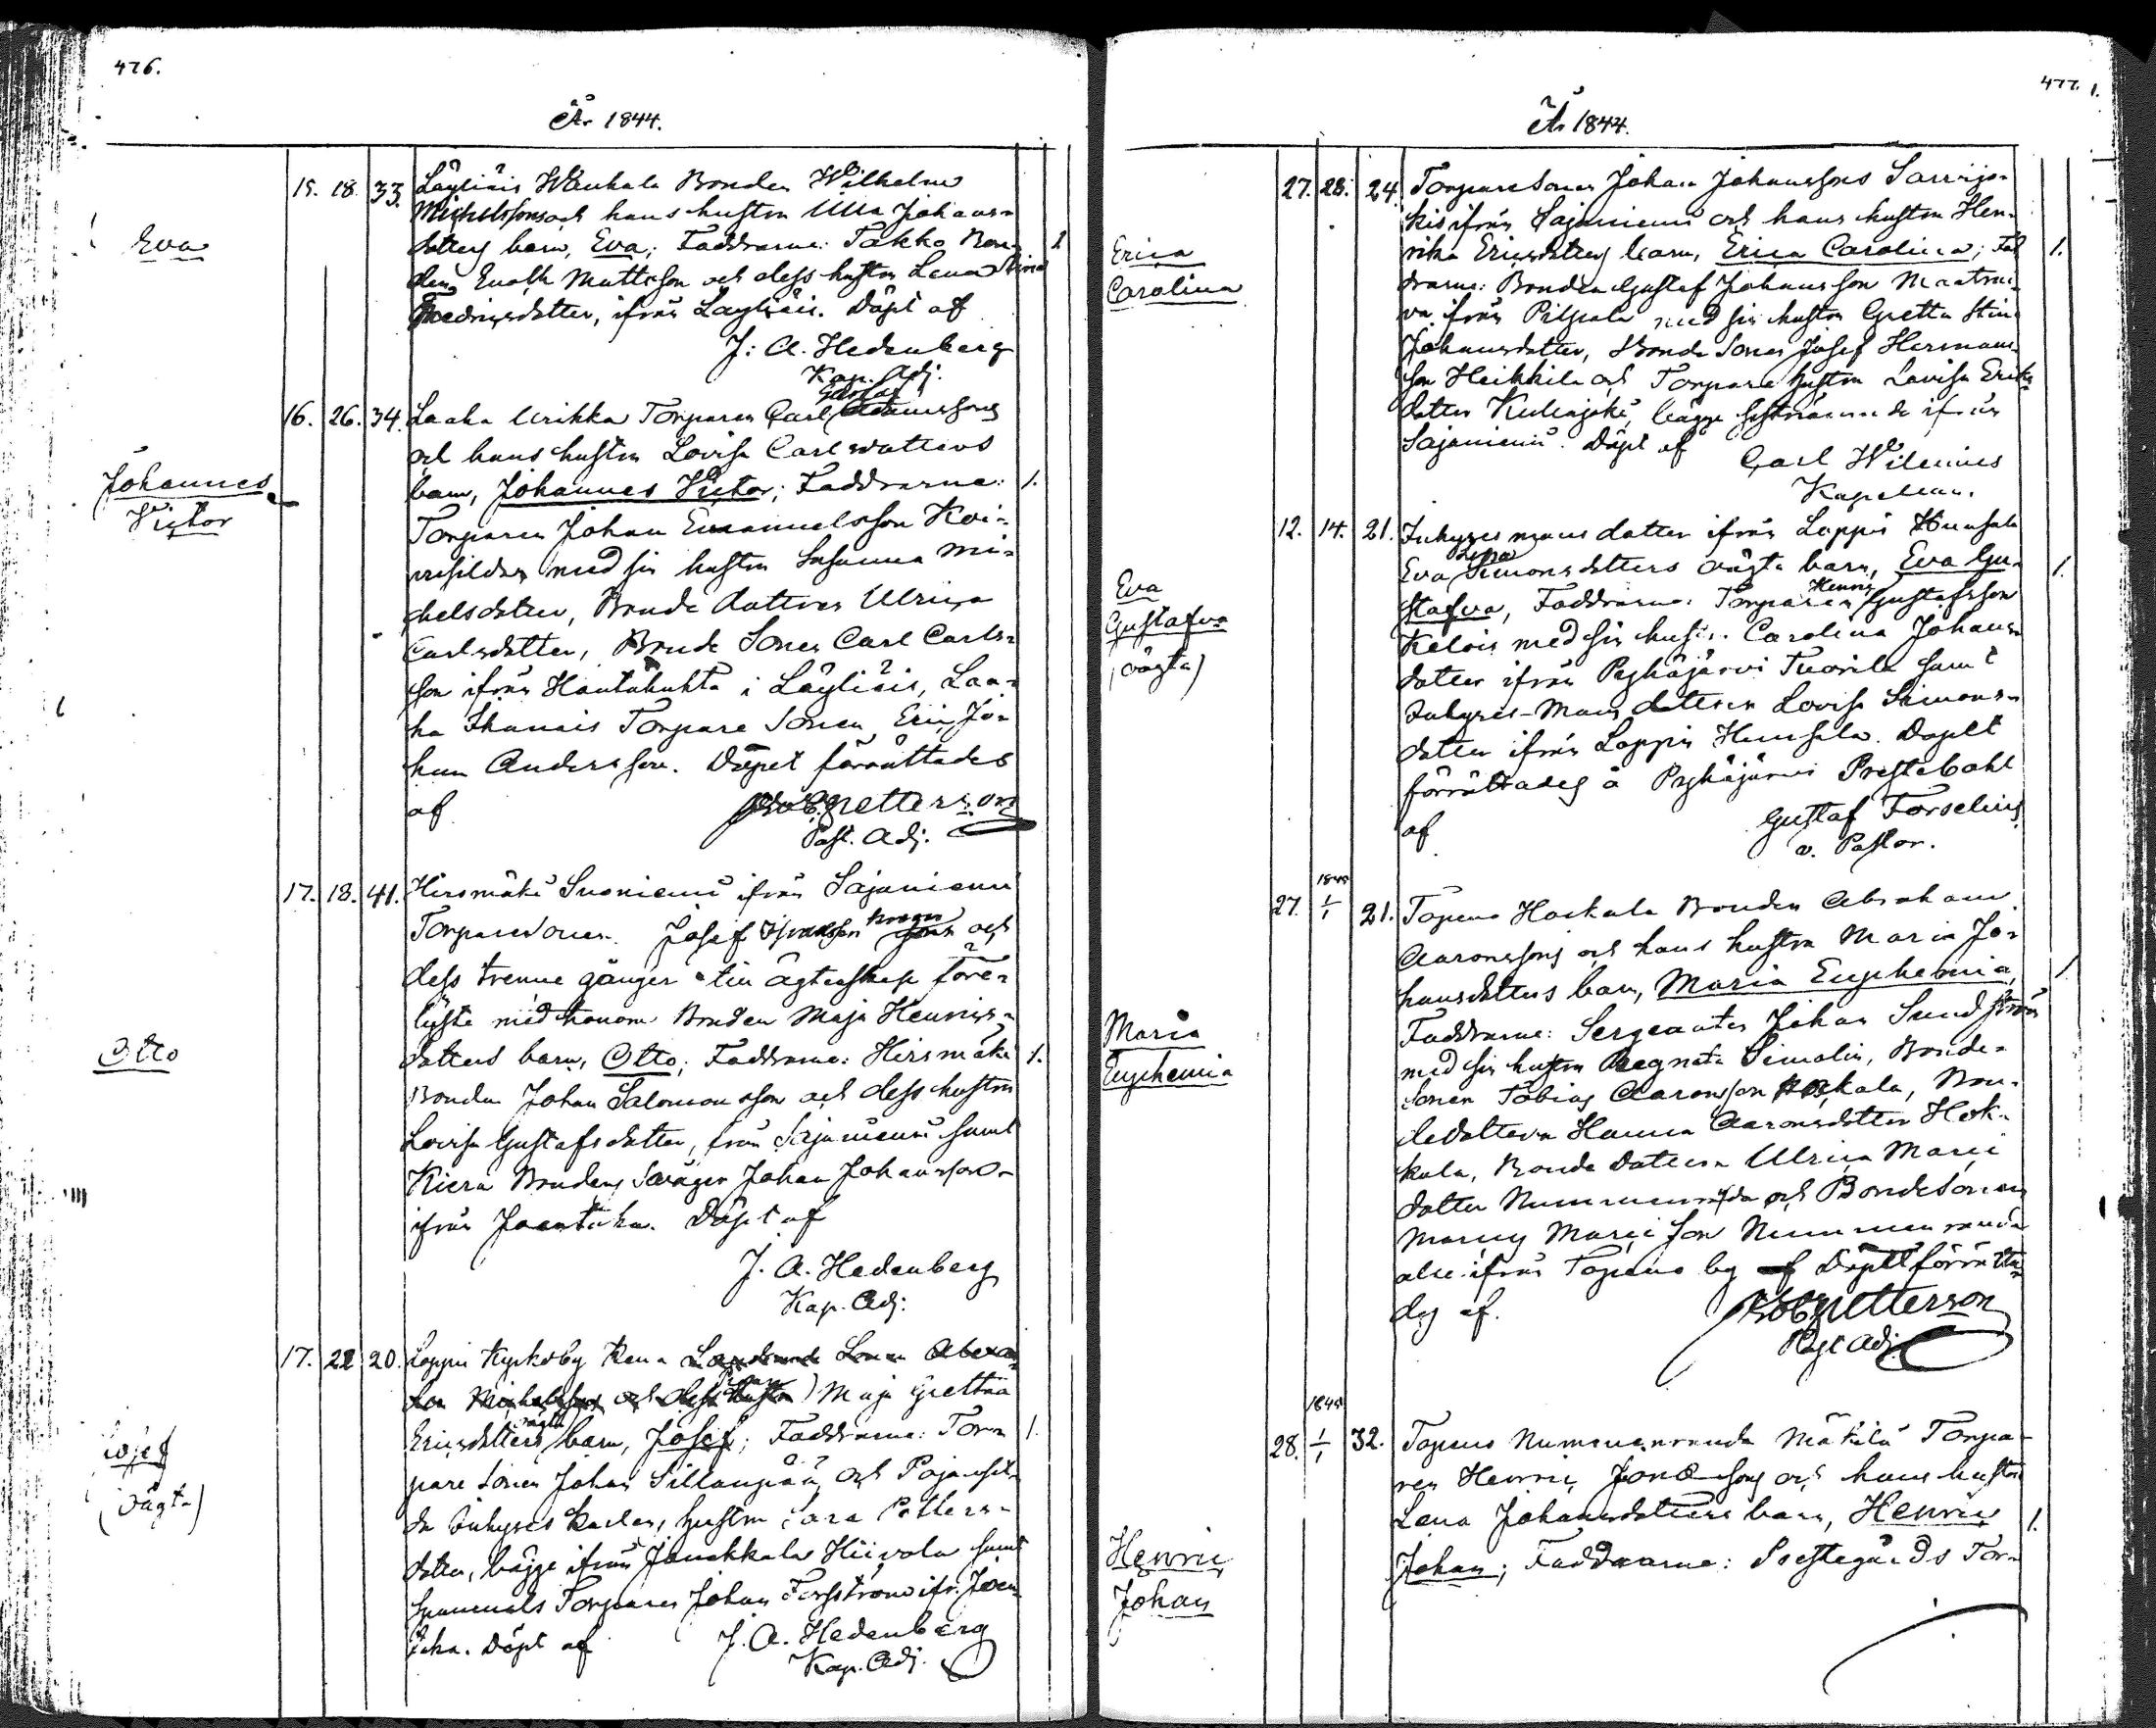 476.
År 1844.
Eva
15. 18. 33. Läyliäis Wänkala Bonden Wilhelm
Michelssons och hans hustru Ulla Johans-
dotters barn, Eva; Faddrarne: Takko Bon- 1
den Enoth Mattsson och dess hustru Lena Stina
Fredricsdotter, ifrån Läyliäis. Döpt af
J: A. Hedenberg
Kap. Adj.
Johannes
Victor
16. 26. 34. Laaka Urikka Torparen Carl Gustaf Adamssons
och hans hustru Lovisa Carlsdotters
barn, Johannes Victor; Faddrarne: 1.
Torparen Johan Emanuelsson Koi-
vusilda med sin hustru Susanna Mi-
chelsdotter, Bonde dottren Ulrica
Carlsdotter, Bonde Sonen Carl Carls-
son ifrån Hautakuhta i Läyliäis, Laa-
ka Torpare Sonen Eric Jo-
han Andersson. Döpet förrättades
af Petterson
Past. Adj.
Otto
17. 18. 41. Hirsmäki Suoniemi ifrån Sajaniemi
Torparesonen Josef och
dess trenne gånger till ägtenskap före-
lyste med honom Bonden Maja Henrics-
dotters barn, Otto; Faddrarne: Hirsmäki 1.
Bonden Johan Salomonsson och dess hustru
Lovisa Gustafsdotter, från Sajaniemi samt
Kiera Bondens Svåger Johan Johansson
ifrån Joentaka. Döpt af
J. A. Hedenberg
Kap. Adj.
Josef
(oägta)
17. 22 20. Loppis Kyrkoby Maja Gretha
Ericsdotters oägta barn, Josef; Faddrarne: Tor- 1.
pare Sonen Johan Sillanpää och Pajusil-
da Inhyses Karlens hustru Sara Petters-
dotter, bägge ifrån Janakkala Hiivola samt
Torparen Johan Forsström ifr. Joen-
taka. Döpt af J. A. Hedenberg
Kap. Adj.
477. 1.
År 1844.
Erica
Carolina
27. 28. 24. Torparesonen Johan Johanssons Sarrijo-
kis ifrån Sajaniemi och hans hustru Hen-
rika Ericsdotters barn, Erica Carolina; Fad- 1.
drarne: Bonden Gustaf Johansson
ifrån Pilpala med sin hustru Gretta Stina
Johansdotter, Bonde Sonen Josef Hermans-
son Heikkilä och Torpare hustrun Lovisa Erics
dotter Kuhajoki, bägge sistnämnde ifrån
Sajaniemi. Döpt af Carl Wilenius
Kapellan.
Eva
Gustafva
(oägta)
12. 14. 21. Inhyses mans dotter ifrån Loppis Hunsala
Eva Lisa Simonsdotters oägta barn, Eva Gu- 1.
stafva, Faddrarne: Torparen Henric Gustafsson
Kelois med sin hustru Carolina Johans-
dotter ifrån Pyhäjärvi Tuorila samt
Inhyses-Mans dotteren Lovisa Simons-
dotter ifrån Loppis Hunsala. Dopet
förrättades å Pyhäjärvi Prestebohl
af Gustaf Forselius
v. Pastor.
Maria
Euphemia
1845
27. 1/1 21. Topeno Hoskala Bonden Abraham
Aaronssons och hans hustru Maria Jo-
hansdotters barn, Maria Euphemia, 1
Faddrarne: Sergeanten Johan Sundström
med sin hustru Regnata Simolin, Bonde-
Sonen Tobias Aaronsson Hoskala, Bon-
dedottern Hanna Aaronsdotter Hok-
kala, Bonde Dottern Ulrica Marci
dotter Nummenrända och Bondesonen
Marcus Marci son Nummenranda
alle ifrån Topeno by Döptes förrätta-
des af. Petterson
Past Adj.
Henric
Johan
1845
28. 1/1 32. Topeno Nummenranda Mäkilä Torpa-
ren Henric Jonæsons och hans hustru
Lena Johansdotters barn, Henric 1.
Johan; Faddrarne: Prestegårds Tor-